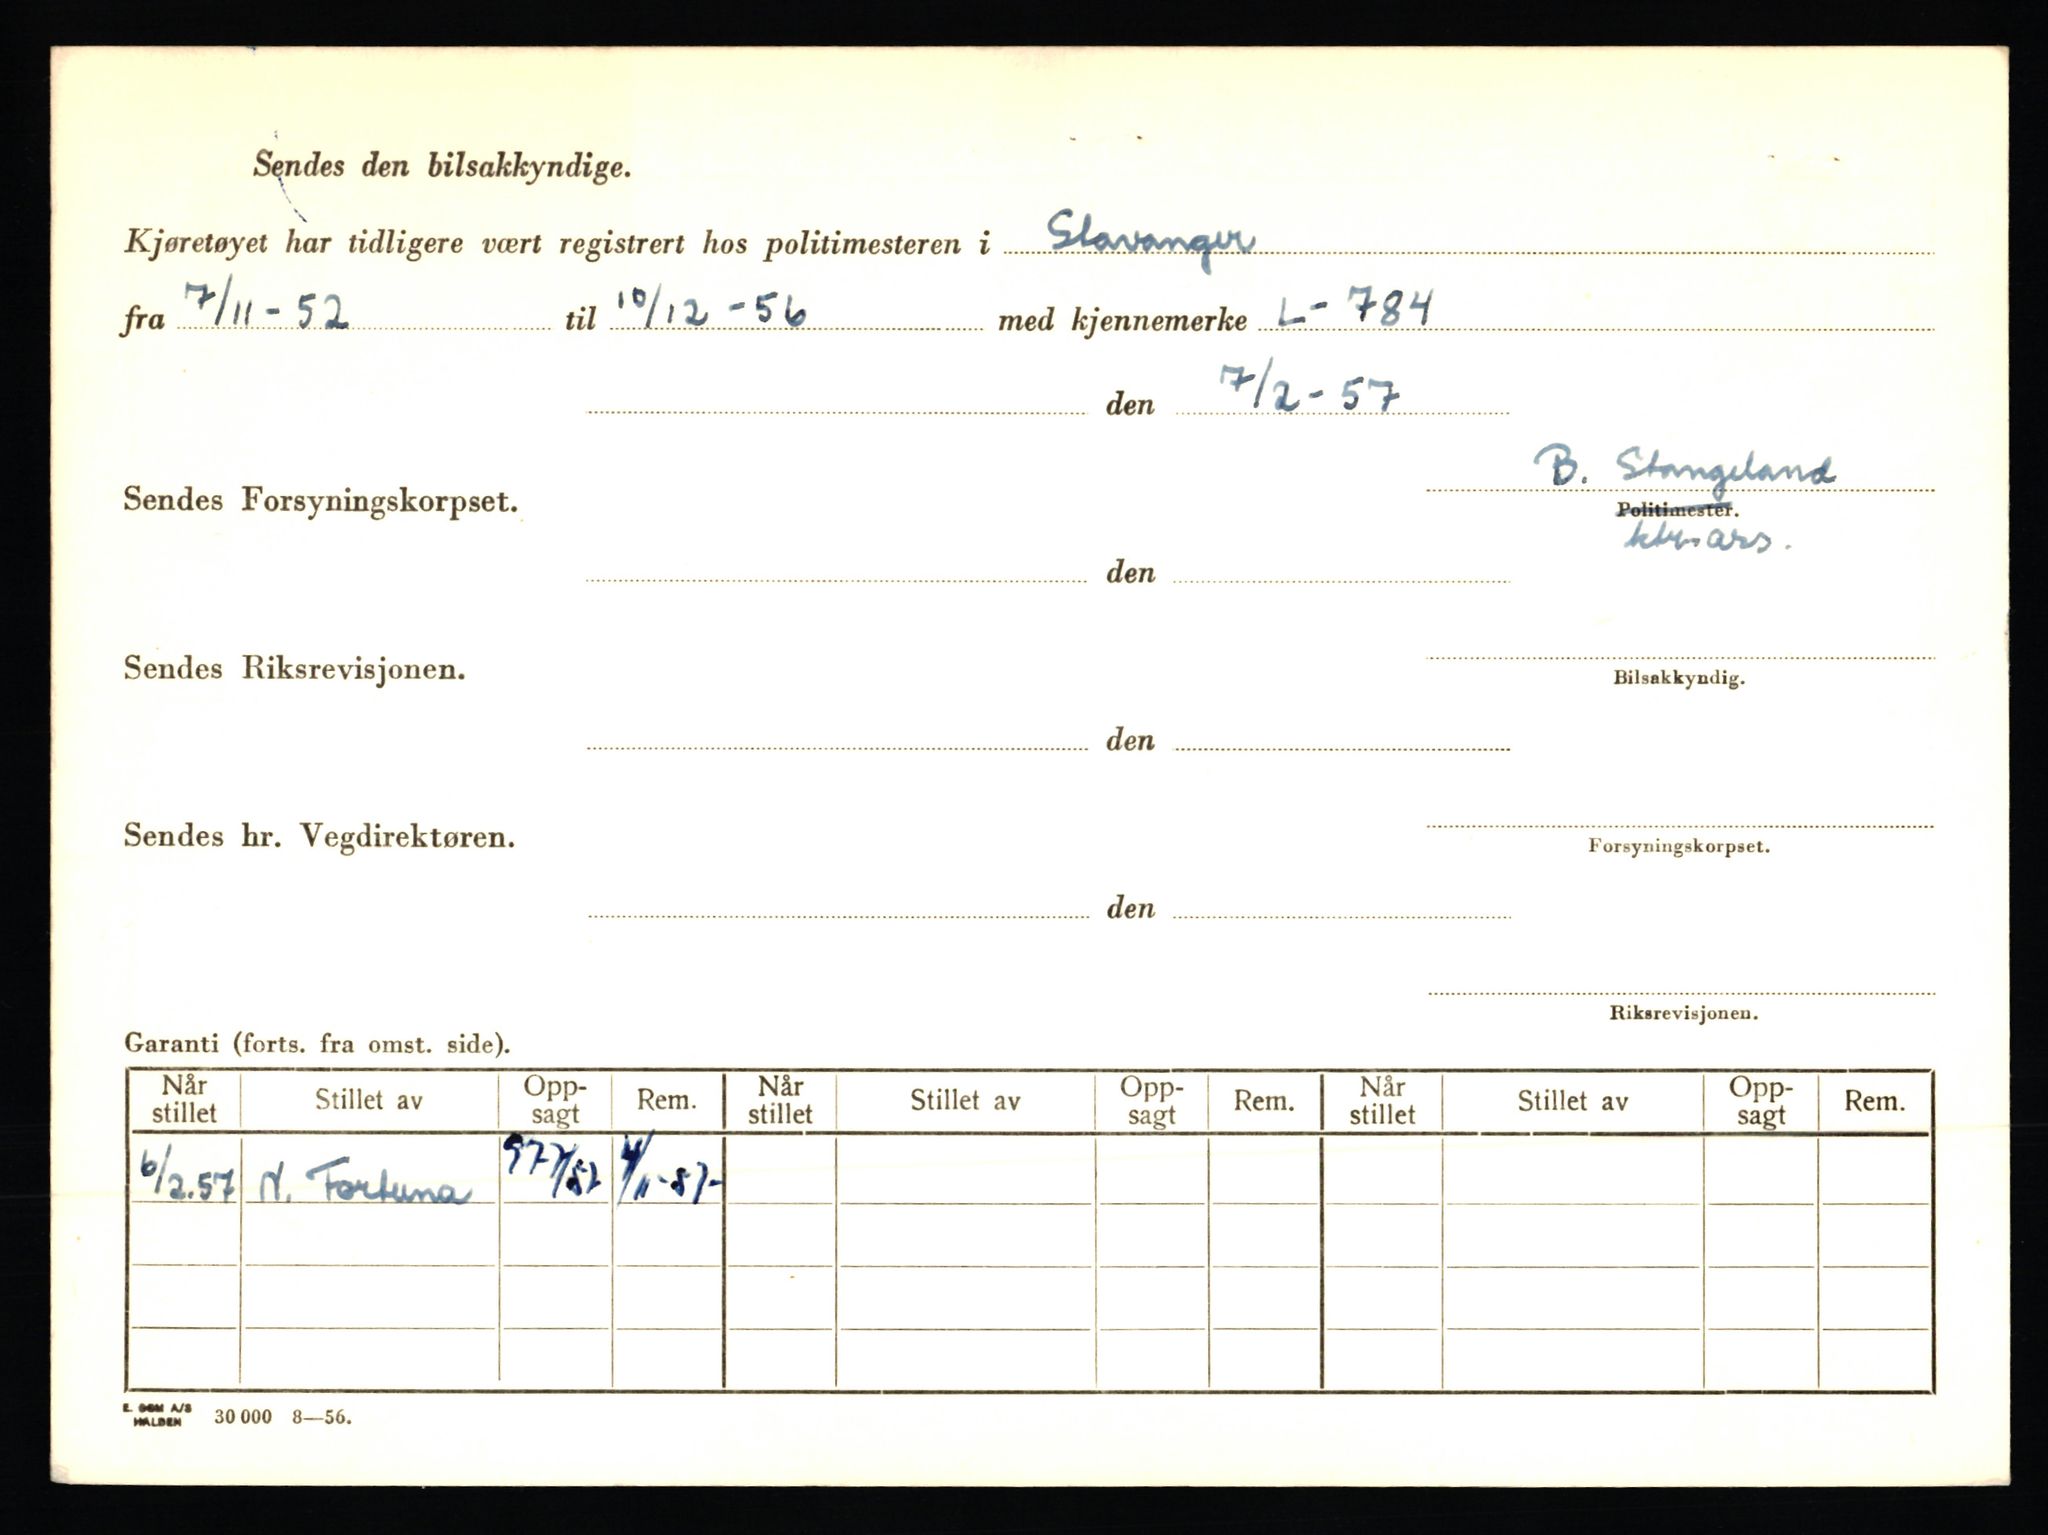 Sendes den bilsakkyndige.
Kjøretøyet har tidligere vært registrert hos politimesteren i Stavanger
fra 7/11-52 til 10/12-56 med kjennemerke L-784
den 7/2-57
B. Stangeland
Sendes Forsyningskorpset.
Politimester.
den
Sendes Riksrevisjonen.
Bilsakkyndig.
den
Sendes hr. Vegdirektøren.
Forsyningskorpset.
den
Riksrevisjonen.
Garanti (forts. fra omst. side).
Når stillet Stillet av Opp-sagt Rem. Når stillet Stillet av Opp-sagt Rem. Når stillet Stillet av Opp-sagt Rem.
6/2.57 N. Fortuna 4/11-57-
E. SEM A/S
HALDEN 30 000 8—56.